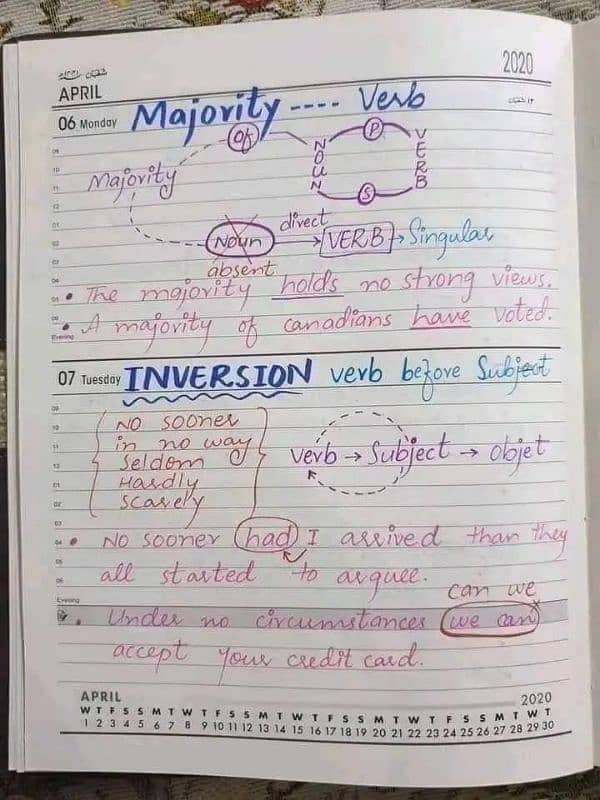 2020
APRIL
06 Monday Majority ---- Verb
Of
P
NOUN
VERB
S
Majority
direct
Noun → VERB → Singular
absent
• The majority holds no strong views.
• A majority of canadians have voted.
Evening
07 Tuesday INVERSION verb before Subject
NO sooner
in no way
Seldom
Hardly
Scarely
verb → Subject → Objet
• NO sooner had I arrived than they
all started to arguee.
can we
Evening
• Under no circumstances we can x
accept your credit card.
APRIL 2020
W T F S S M T W T F S S M T W T F S S M T W T F S S M T W T
1 2 3 4 5 6 7 8 9 10 11 12 13 14 15 16 17 18 19 20 21 22 23 24 25 26 27 28 29 30